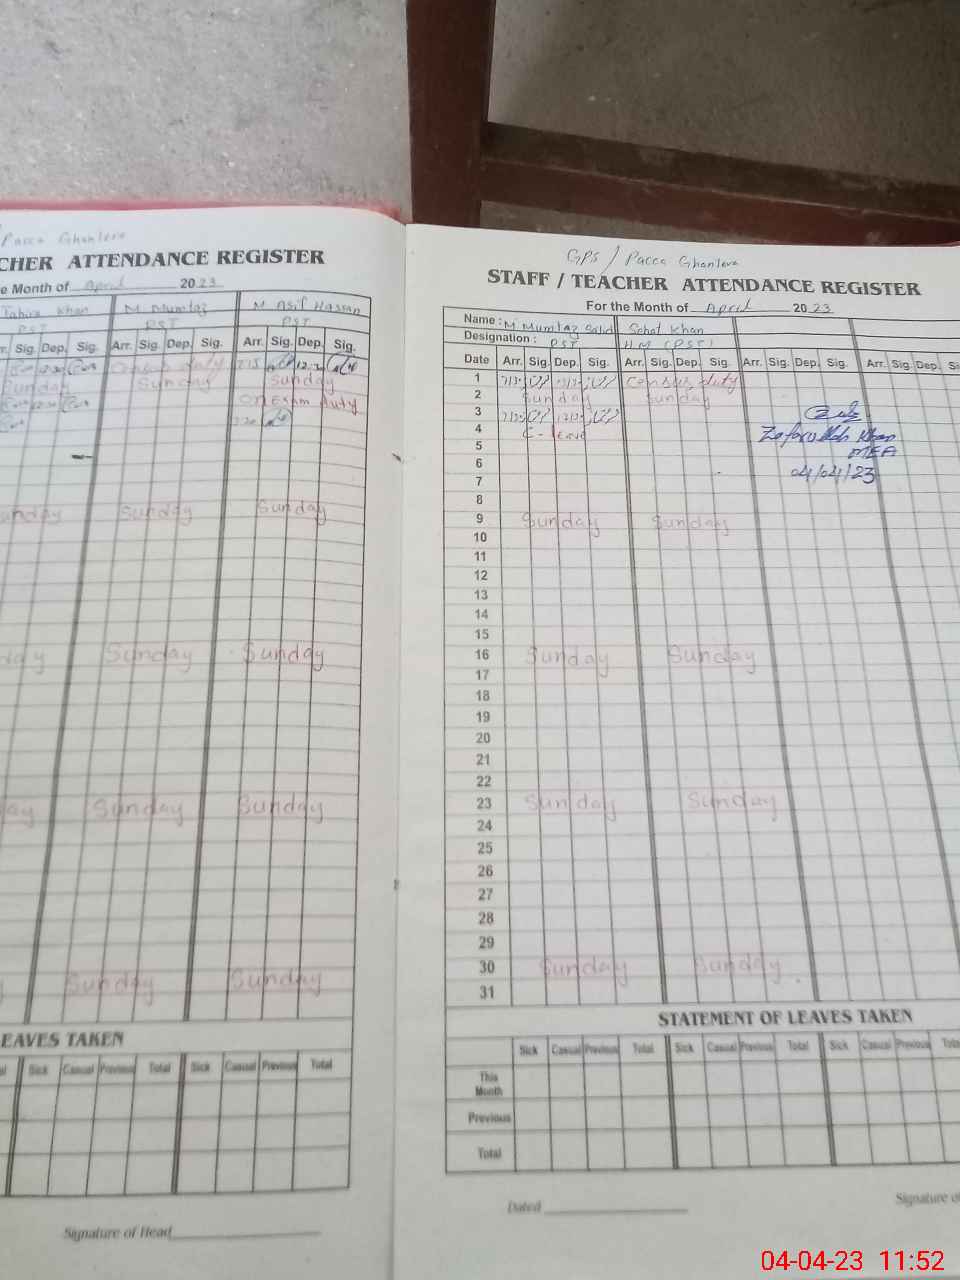 Pacca Ghanlera
CHER ATTENDANCE REGISTER
e Month of April 2023
Tahira Khan M Mumtaz M Asif Hassan
PST PST PST
r. Sig. Dep. Sig. Arr. Sig. Dep. Sig. Arr. Sig. Dep. Sig.
Census duty
Sunday Sunday Sunday
on Exam duty
unday Sunday Sunday
day Sunday Sunday
day Sunday Sunday
Sunday Sunday
EAVES TAKEN
al Sick Casual Previous Total Sick Casual Previous Total
Signature of Head
GPS / Pacca Ghanlera
STAFF / TEACHER ATTENDANCE REGISTER
For the Month of April 2023
Name : M Mumtaz Sajid Sehat Khan
Designation : PST HM (PSC)
Date Arr. Sig. Dep. Sig. Arr. Sig. Dep. Sig. Arr. Sig. Dep. Sig. Arr. Sig. Dep. Si
1 Census duty
2 Sunday Sunday
3
4 C-leave
Zafarullah Khan
5 MEA
6
04/04/23
7
8
9 Sunday Sunday
10
11
12
13
14
15
16 Sunday Sunday
17
18
19
20
21
22
23 Sunday Sunday
24
25
26
27
28
29
30 Sunday Sunday
31
STATEMENT OF LEAVES TAKEN
Sick Casual Previous Total Sick Casual Previous Total Sick Casual Previous Tota
This Month
Previous
Total
Dated
Signature o
04-04-23 11:52